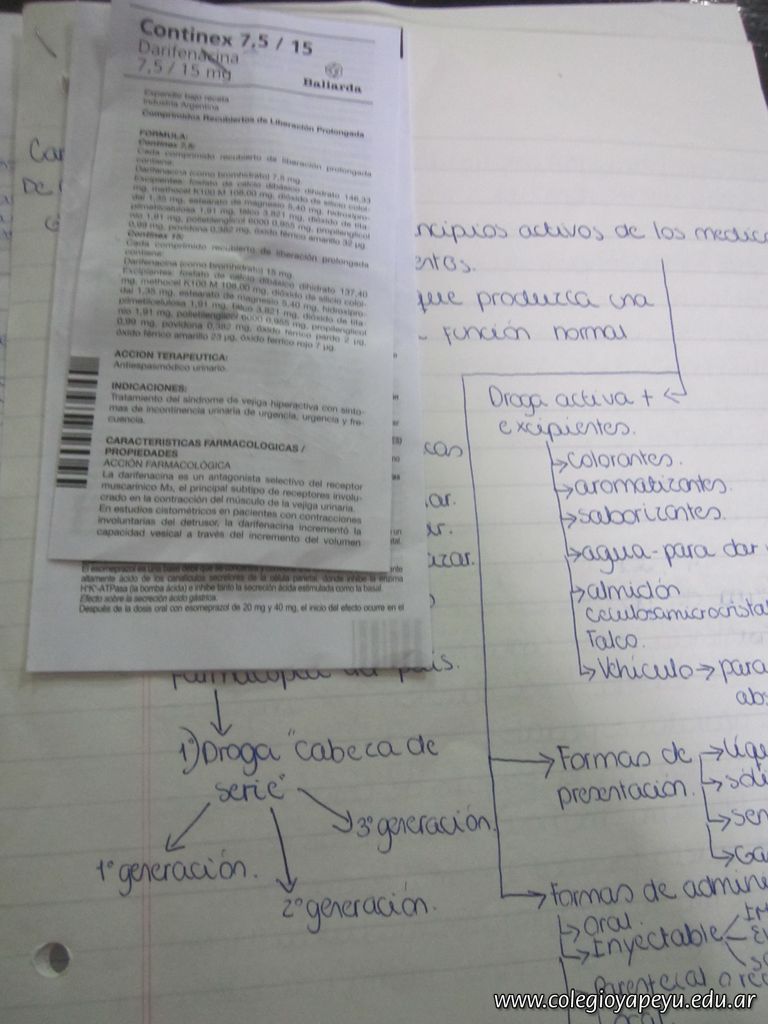 Continex 7,5 / 15
Darifenacina
7,5 / 15 mg
Ballarda
Expendio bajo receta
Industria Argentina
Comprimidos Recubiertos de Liberación Prolongada
FORMULA:
Continex 7,5:
Cada comprimido recubierto de liberación prolongada
contiene:
Darifenacina (como bromhidrato) 7,5 mg
Excipientes: fosfato de calcio dibásico dihidrato 146,33
mg, methocel K100 M 108,00 mg, dióxido de silicio coloi-
dal 1,35 mg, estearato de magnesio 5,40 mg, hidroxipro-
pilmetilcelulosa 1,91 mg, talco 3,821 mg, dióxido de tita-
nio 1,91 mg, polietilenglicol 6000 0,955 mg, propilenglicol
0,99 mg, povidona 0,382 mg, óxido férrico amarillo 32 µg.
Continex 15:
Cada comprimido recubierto de liberación prolongada
contiene:
Darifenacina (como bromhidrato) 15 mg
Excipientes: fosfato de calcio dibásico dihidrato 137,40
mg, methocel K100 M 108,00 mg, dióxido de silicio coloi-
dal 1,35 mg, estearato de magnesio 5,40 mg, hidroxipro-
pilmetilcelulosa 1,91 mg, talco 3,821 mg, dióxido de tita-
nio 1,91 mg, polietilenglicol 6000 0,955 mg, propilenglicol
0,99 mg, povidona 0,382 mg, óxido férrico pardo 2 µg,
óxido férrico amarillo 23 µg, óxido férrico rojo 7 µg.
ACCION TERAPEUTICA:
Antiespasmódico urinario.
INDICACIONES:
Tratamiento del síndrome de vejiga hiperactiva con sínto-
mas de incontinencia urinaria de urgencia, urgencia y fre-
cuencia.
CARACTERISTICAS FARMACOLOGICAS /
PROPIEDADES
ACCIÓN FARMACOLÓGICA
La darifenacina es un antagonista selectivo del receptor
muscarínico M₃, el principal subtipo de receptores involu-
crado en la contracción del músculo de la vejiga urinaria.
En estudios cistométricos en pacientes con contracciones
involuntarias del detrusor, la darifenacina incrementó la
capacidad vesical a través del incremento del volumen
altamente ácido de los canalículos secretores de la célula parietal, donde inhibe la enzima
H⁺K⁺-ATPasa (la bomba ácida) e inhibe tanto la secreción ácida estimulada como la basal.
Efecto sobre la secreción ácido gástrica.
Después de la dosis oral con esomeprazol de 20 mg y 40 mg, el inicio del efecto ocurre en el
ncipios activos de los medica
entos.
que produzca una
función normal
Droga activa +
excipientes.
→colorantes.
→aromatizantes.
→saborizantes.
→agua-para dar
→almidón
celulosamicrocristal
Talco.
→Vehículo→para
abs
país.
1°)Droga "cabeza de
serie"
1° generación.
2° generación.
3° generación.
→Formas de
presentación.
→líqu
→sóli
→sem
→Ga
→Formas de admini
→Oral.
→Inyectable
www.colegioyapeyu.edu.ar